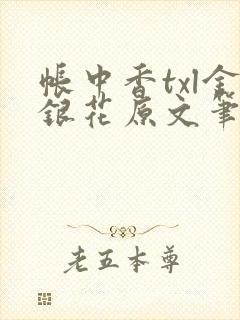 帐中香txl金
银花原文笔
老五本尊